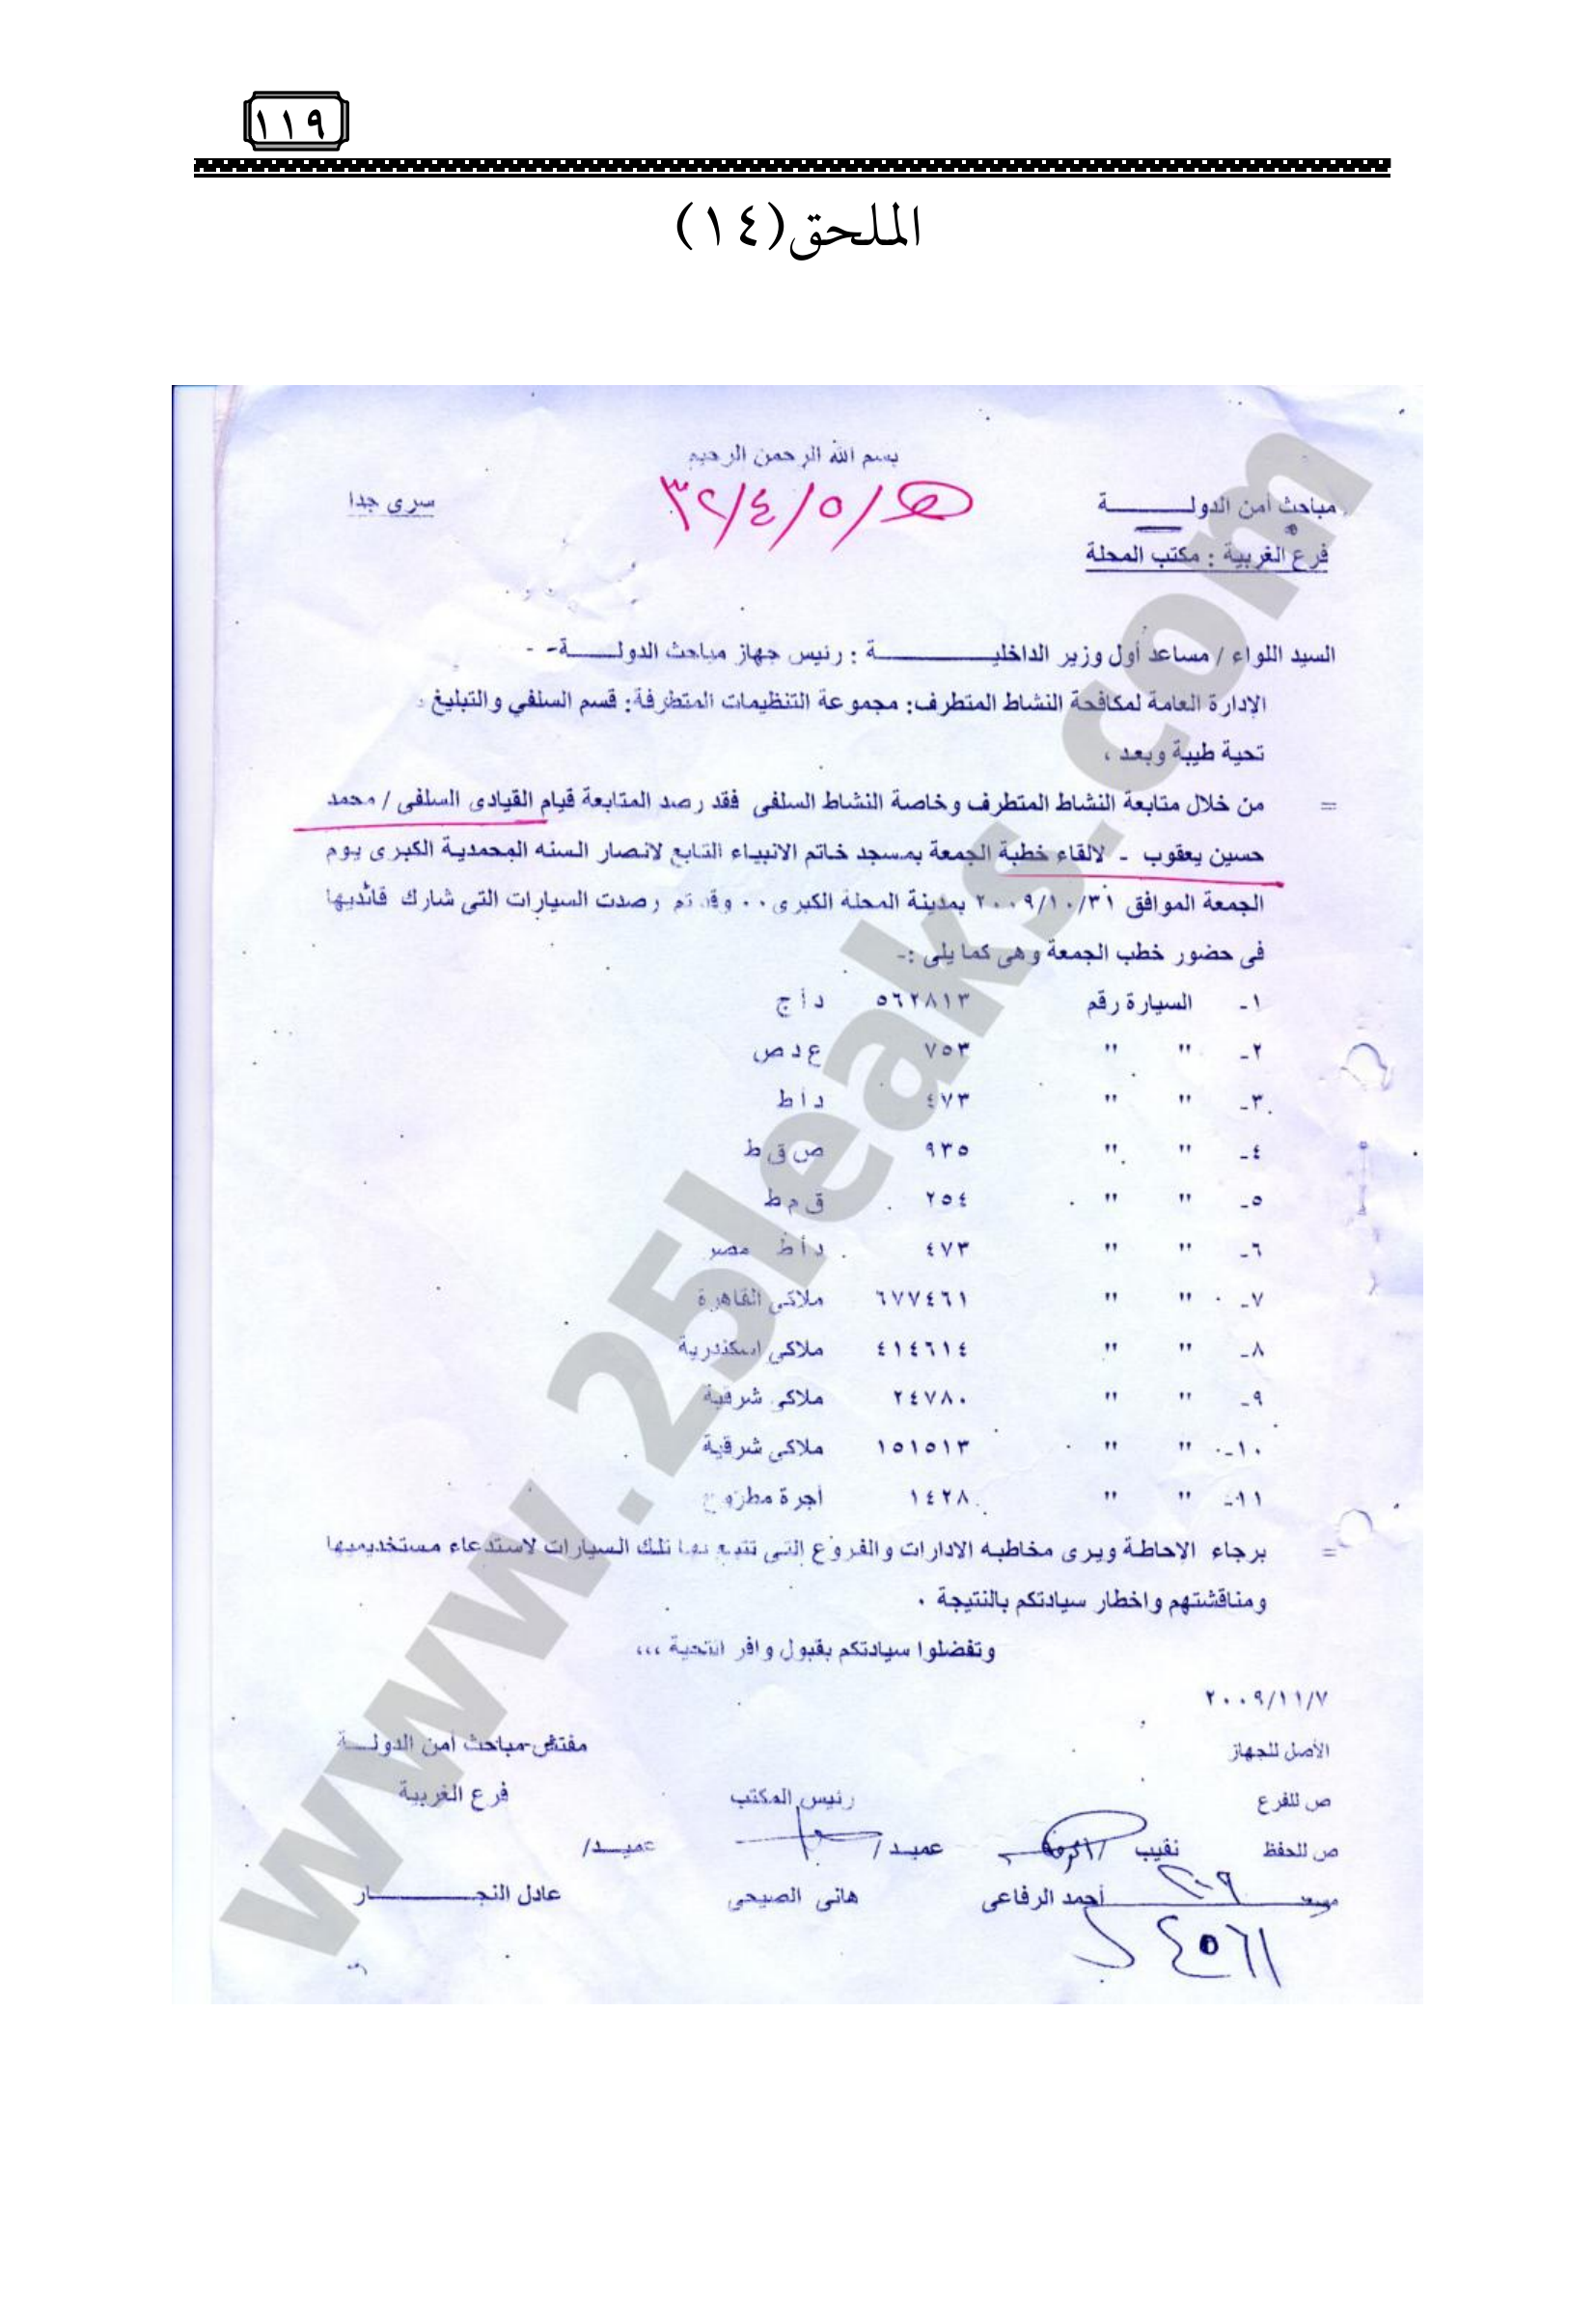 ١١٩
الملحق(١٤)
بسم الله الرحمن الرحيم
مباحث أمن الدولـــــة
سرى جدا
هـ/٥/٤/٣٢
فرع الغربية : مكتب المحلة
السيد اللواء / مساعد أول وزير الداخليـــــــــة : رئيس جهاز مباحث الدولـــــة- -
الإدارة العامة لمكافحة النشاط المتطرف: مجموعة التنظيمات المتطرفة: قسم السلفي والتبليغ
تحية طيبة وبعد ،
= من خلال متابعة النشاط المتطرف وخاصة النشاط السلفى فقد رصد المتابعة قيام القيادى السلفى / محمد
حسين يعقوب - لالقاء خطبة الجمعة بمسجد خاتم الانبياء التابع لانصار السنه المحمدية الكبرى يوم
الجمعة الموافق ٢٠٠٩/١٠/٣١ بمدينة المحلة الكبرى .. وقد تم رصدت السيارات التى شارك قائديها
فى حضور خطب الجمعة وهى كما يلى :-
١- السيارة رقم ٥٦٢٨١٣ د أ ج
٢- " " ٧٥٣ ع د ص
٣- " " ٤٧٣ د أ ط
٤- " " ٩٣٥ ص ق ط
٥- " " ٢٥٤ ق م ط
٦- " " ٤٧٣ د أ ط مصر
٧- " " ٦٧٧٤٦١ ملاكى القاهرة
٨- " " ٤١٤٦١٤ ملاكى اسكندرية
٩- " " ٢٤٧٨٠ ملاكى شرقية
١٠- " " ١٥١٥١٣ ملاكى شرقية
١١- " " ١٤٢٨ أجرة مطروح
= برجاء الاحاطة ويرى مخاطبه الادارات والفروع التى تتبع لها تلك السيارات لاستدعاء مستخديميها
ومناقشتهم واخطار سيادتكم بالنتيجة .
وتفضلوا سيادتكم بقبول وافر التحية ،،،
٢٠٠٩/١١/٧
الأصل للجهاز
مفتش مباحث أمن الدولـــة
ص للفرع
رئيس المكتب
فرع الغربية
ص للحفظ
نقيب /
عميد /
عميــد/
أحمد الرفاعى
هانى الصيحى
عادل النجـــــــار
٤٥٦١
www.25leaks.com